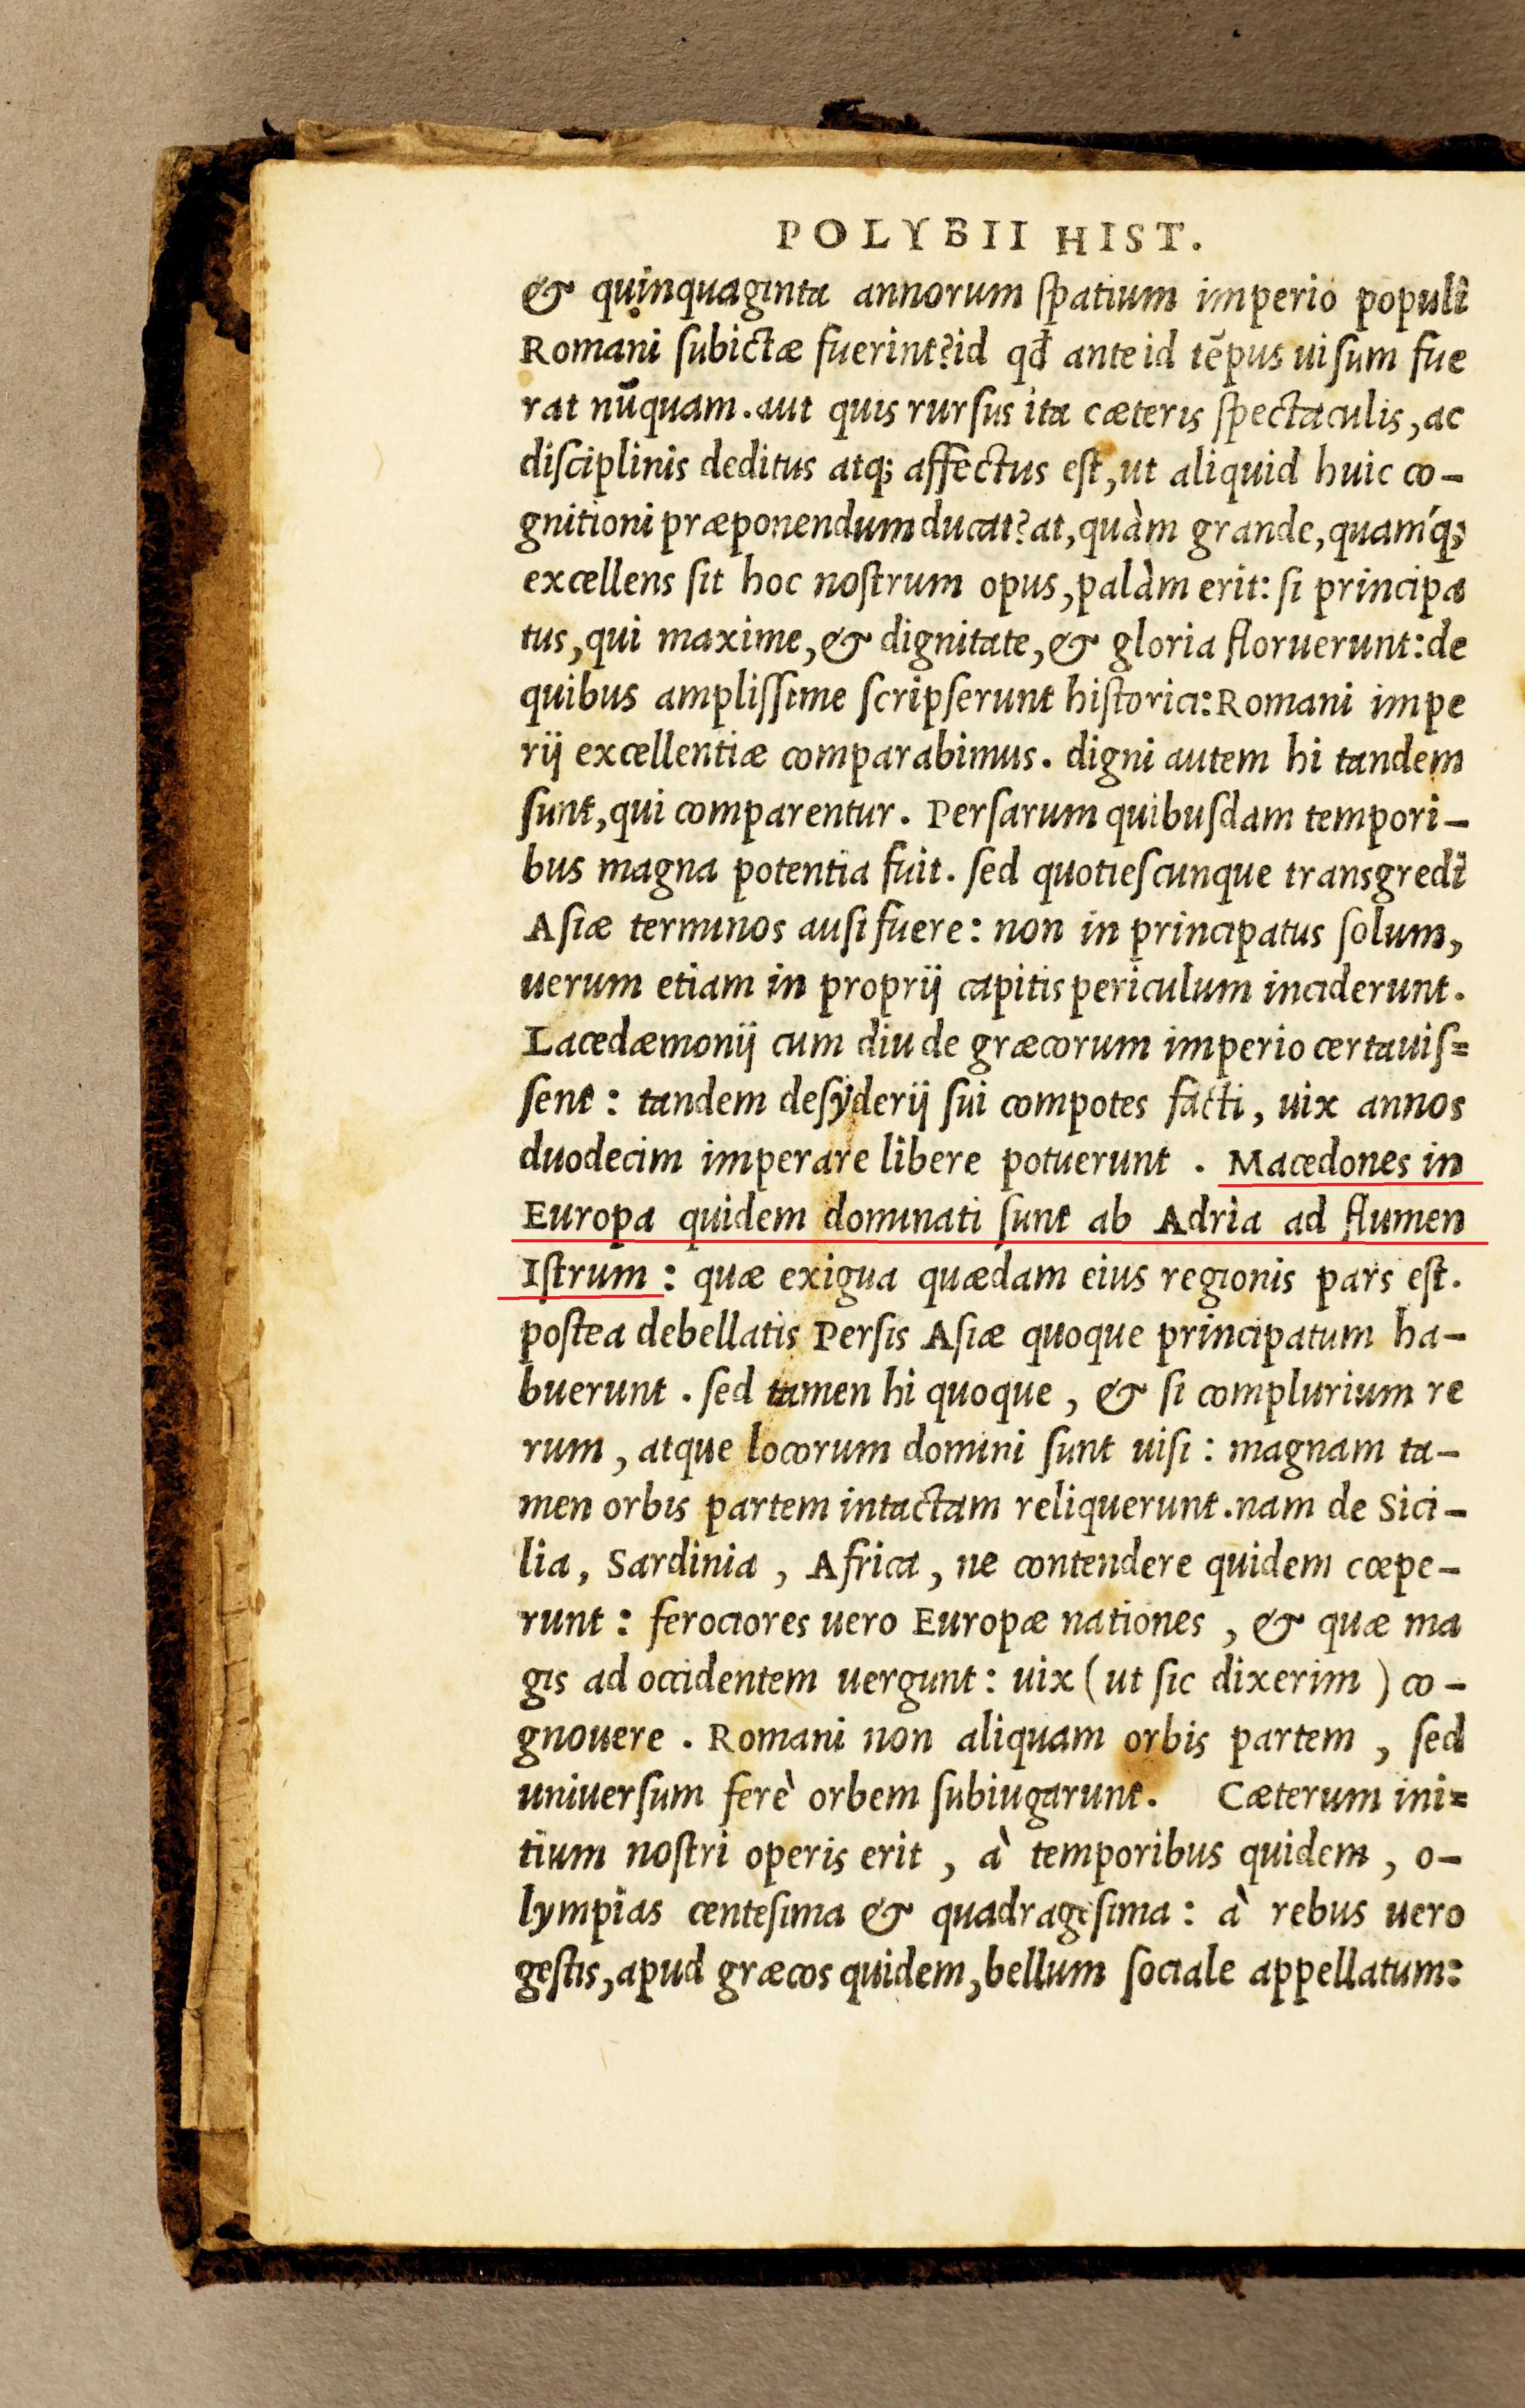 POLYBII HIST.
& quinquaginta annorum ſpatium imperio populi
Romani ſubictæ fuerint?id qđ ante id tēpus uiſum fue
rat nūquam.aut quis rurſus ita cæteris ſpectaculis, ac
diſciplinis deditus atq; affectus eſt, ut aliquid huic co-
gnitioni præponendum ducat?at, quàm grande, quamq́;
excellens ſit hoc noſtrum opus, palàm erit: ſi principa
tus, qui maxime, & dignitate, & gloria floruerunt: de
quibus ampliſſime ſcripſerunt hiſtorici: Romani impe
rij excellentiæ comparabimus. digni autem hi tandem
ſunt, qui comparentur. Perſarum quibuſdam tempori-
bus magna potentia fuit. ſed quotieſcunque transgredi
Aſiæ terminos auſi fuere: non in principatus ſolum,
uerum etiam in proprij capitis periculum inciderunt.
Lacedæmonij cum diu de græcorum imperio certauiſ=
ſent: tandem deſyderij ſui compotes facti, uix annos
duodecim imperare libere potuerunt. Macedones in
Europa quidem dominati ſunt ab Adria ad flumen
Iſtrum: quæ exigua quædam eius regionis pars eſt.
poſtea debellatis Perſis Aſiæ quoque principatum ha-
buerunt. ſed tamen hi quoque, & ſi complurium re
rum, atque locorum domini ſunt uiſi: magnam ta-
men orbis partem intactam reliquerunt. nam de Sici-
lia, Sardinia, Africa, ne contendere quidem cœpe-
runt: ferociores uero Europæ nationes, & quæ ma
gis ad occidentem uergunt: uix (ut ſic dixerim) co-
gnouere. Romani non aliquam orbis partem, ſed
uniuerſum ferè orbem ſubiugarunt. Cæterum ini=
tium noſtri operis erit, à temporibus quidem, o-
lympias centeſima & quadrageſima: à rebus uero
geſtis, apud græcos quidem, bellum ſociale appellatum: